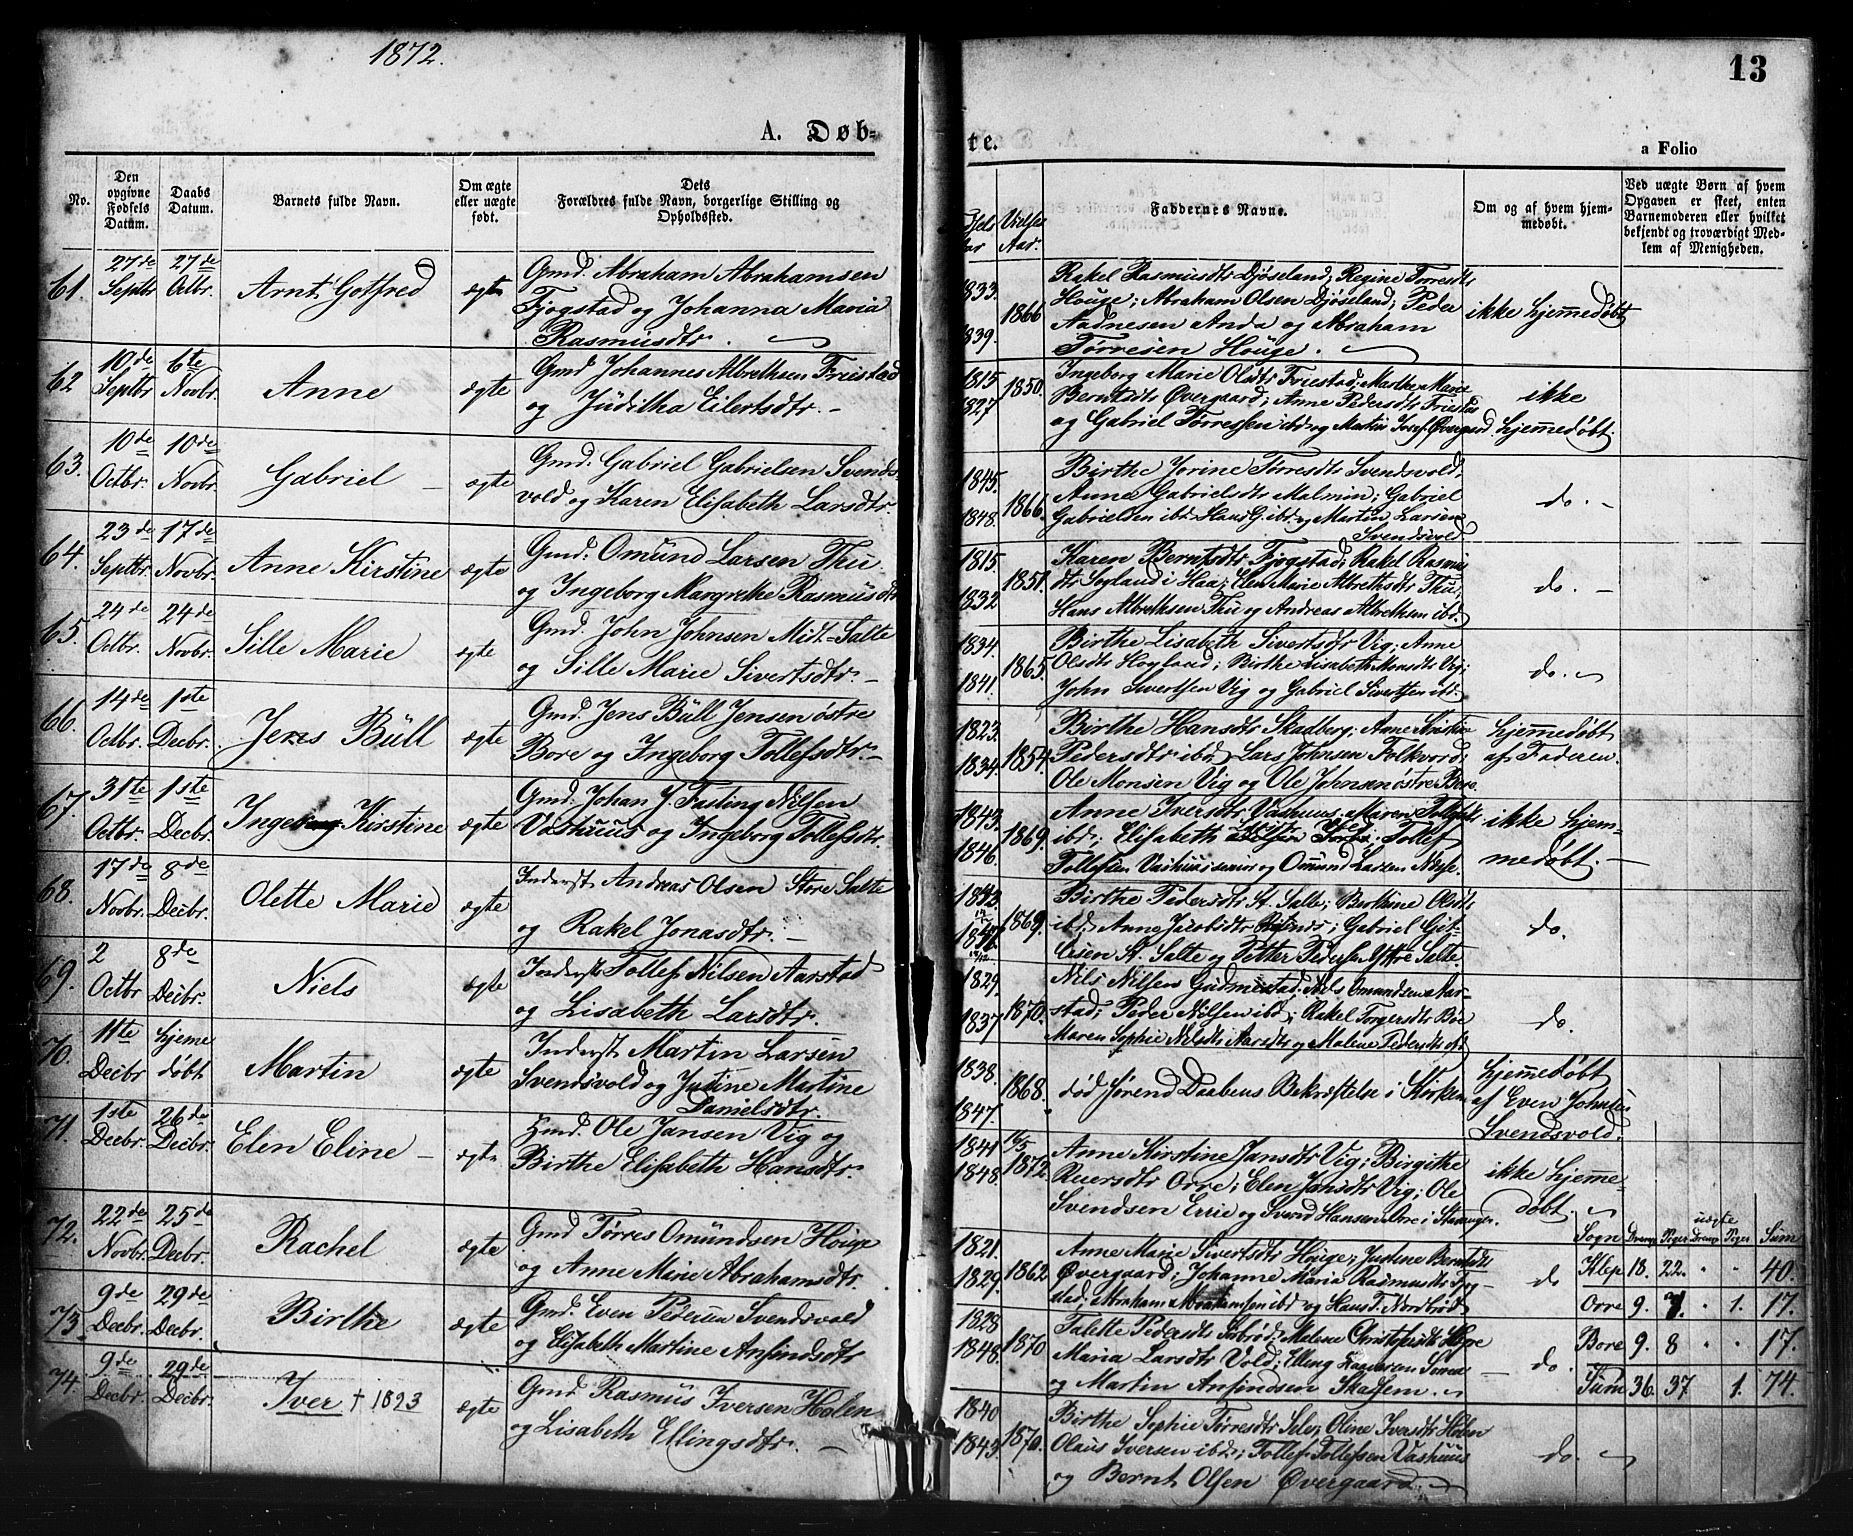 1872.
13
A. Døb-
te.
a Folio
No.
Den opgivne Fødsels Datum.
Daabs Datum.
Barnets fulde Navn.
Om ægte eller uægte født.
Dets Forældres fulde Navn, borgerlige Stilling og Opholdssted.
Vielses Aar.
Faddernes Navne.
Om og af hvem hjemmedøbt.
Ved uægte Børn af hvem Opgaven er skeet, enten Barnemoderen eller hvilket bekjendt og troværdigt Medlem af Menigheden.
61. 27de Septbr. 27de Octbr. Arnt Gotfred ægte
Gmd. Abraham Abrahamsen
Fjogstad og Johanna Maria
Rasmusdtr.
1833. 1839. 1866
Rakel Rasmusdtr Djøseland; Regine Tørresdtr
Houge; Abraham Olsen Djøseland; Peder
Aadnesen Anda og Abraham
Tørresen Houge.
ikke hjemmedøbt
62 10de Septbr. 6te Novbr. Anne ægte
Gmd Johannes Albrethsen Friestad
og Juditha Eilertsdtr.
1815 1827 1850.
Ingeborg Marie Olsdtr Friestad; Marthe Marie
Berntsdtr Øvergaard; Anne Pedersdtr Friestad
og Gabriel Tørressen ibd og Martin Josefs. Øvergaard.
ikke hjemmedøbt.
63. 10de Octbr. 10de Novbr. Gabriel ægte
Gmd. Gabriel Gabrielsen Svends-
vold og Karen Elisabeth Larsdtr.
1845. 1848. 1866.
Birthe Jorine Tørresdtr Svendsvold;
Anna Gabrielsdtr Malmin; Gabriel
Gabrielsen ibd. Hans G. ibd. og Martin Larsen
Svendsvold.
do.
64. 23de Septbr. 17de Novbr. Anne Kirstine ægte
Gmd. Omund Larsen Thu
og Ingeborg Margrethe Rasmusdtr
1815 1832 1851.
Karen Berntsdtr Fjogstad; Rakel Rasmus
dtr Sogland i Haa; Elen Marie Albrethsdtr Thu;
Hans Albrethsen Thu og Andreas Albrethsen ibd.
do.
65. 24de Octbr. 24de Novbr. Sille Marie ægte
Gmd. John Johnsen Midt-Salte
og Sille Marie Sivertsdtr.
1834. 1841. 1865.
Birthe Lisabeth Sivertsdtr Vig; Anne
Olsdtr Hogland; Birthe Lisabeth Monsdtr Vig;
John Sivertsen Vig og Gabriel Sivertsen ibd.
do.
66. 14de Octbr. 1ste Decbr. Jens Büll ægte
Gmd. Jens Büll Jensen østre
Bore og Ingeborg Tollefsdtr.
1823. 1834. 1854.
Birthe Hansdtr Skadberg; Anne Kirstine
Pedersdtr ibd. Lars Johnsen Folkvord;
Ole Monsen Vig og Ole Johnsen østre Bore.
hjemmedøbt af Faderen.
67. 31te Octbr. 1ste Decbr. Ingeborg Kirstine ægte
Gmd. Johan J. Fasting Nilsen
Vashuus og Ingeborg Tollefsdtr.
1843. 1846. 1869.
Anne Iversdtr Vashuus; Maren Tollefsdtr
ibd; Elisabeth Tollef
Tollefsen Vashuus senior og Omund Larsen Nilse.
ikke hjemmedøbt.
68. 17de Novbr. 8de Decbr. Olette Marie ægte
Inderst. Andreas Olsen Store Salte
og Rakel Jonasdtr.
1869.
Birthe Pedersdtr St. Salte; Berthine Olsdtr
ibd; Anne Jacobsdtr Gabriel Git-
lesen St. Salte og Petter Pedersen Yttre Salte.
do.
69. 2 Octbr 8de Decbr. Niels ægte
Inderst. Tollef Nilsen Aarstad
og Lisabeth Larsdtr.
1829. 1837. 1870.
Nils Nilsen Gudmestad; Nils Omundsen Aar-
stad; Peder Nilsen ibd; Rakel Torgersdtr Bøe
Maren Sophie Nilsdtr Aarstad og Malene Pedersdtr ibd.
do.
70. 11te Decbr hjemmedøbt Martin ægte
Inderst. Martin Larsen
Svendsvold og Judine Martine
Danielsdtr.
1838. 1847. 1868.
død førend Daabens Bekræftelse i Kirken
hjemmedøbt af Even Johnsen Svendsvold.
71. 1ste Decbr. 26de Decbr. Elen Eline ægte
Hmd. Ole Jansen Vig og
Birthe Elisabeth Hansdtr.
1841 1848. 16/5 1872.
Anne Kirstine Jansdtr Vig; Birgithe
Reiersdtr Orre; Elen Jansdtr Vig; Ole
Svendsen Erge og Svend Hansen Orre i Stavanger.
ikke hjemmedøbt.
72. 22de Novbr. 25de Decbr. Rachel ægte
Gmd Tørres Omundsen Houge
og Anne Marie Abrahamsdtr.
1821. 1829. 1862
Anne Marie Sivertsdtr Houge; Justine Berntsdtr
Øvergaard; Johanne Maria Rasmusdtr Fjog-
stad, Abraham Abrahamsen ibd og Hans T. Nordbrød
do
73. 9de Decbr. 29de Decbr. Birthe ægte
Gmd. Even Pedersen Svendsvold
og Elisabeth Martine Anfindsdtr
1828 1848. 1870
Talette Pedersdtr Malene Christophsdtr
Maria Larsdtr Vold; Elling
og Martin Anfindsen
do.
74. 9de Decbr. 29de Decbr. Iver † 1893 ægte
Gmd. Rasmus Iversen Holen
og Lisabeth Ellingsdtr.
1840 1843. 1870.
Birthe Sophie Tørresdtr Sele; Oline Iversdtr Holen
Olaus Iversen ibd; Tollef Tollefsen Vashuus
og Bernt Olsen Øvergaard.
do.
uægte
Sogn Drenge Piger Drenge Piger Sum
Klep 18. 22. " " 40.
Orre 9. 7. " 1. 17.
Bore 9. 8 " " 17.
Sum 36. 37. 1. 74.